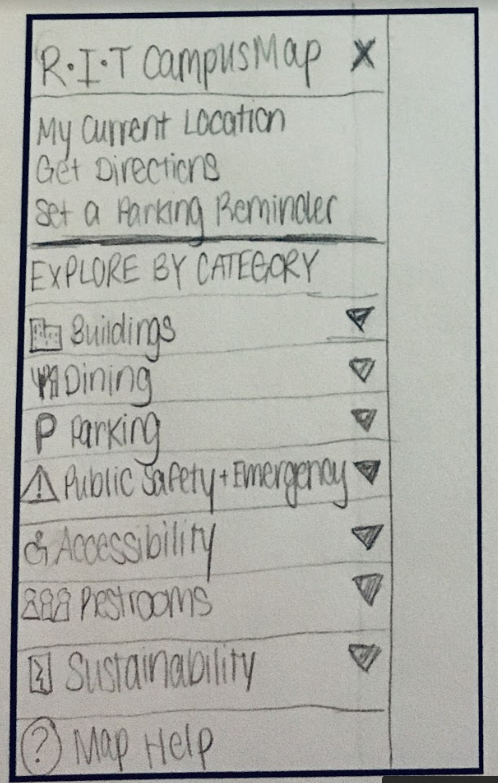 R•I•T Campus Map X
My Current Location
Get Directions
Set a Parking Reminder
EXPLORE BY CATEGORY
Buildings
Dining
P Parking
Public Safety + Emergency
Accessibility
Restrooms
Sustainability
? Map Help